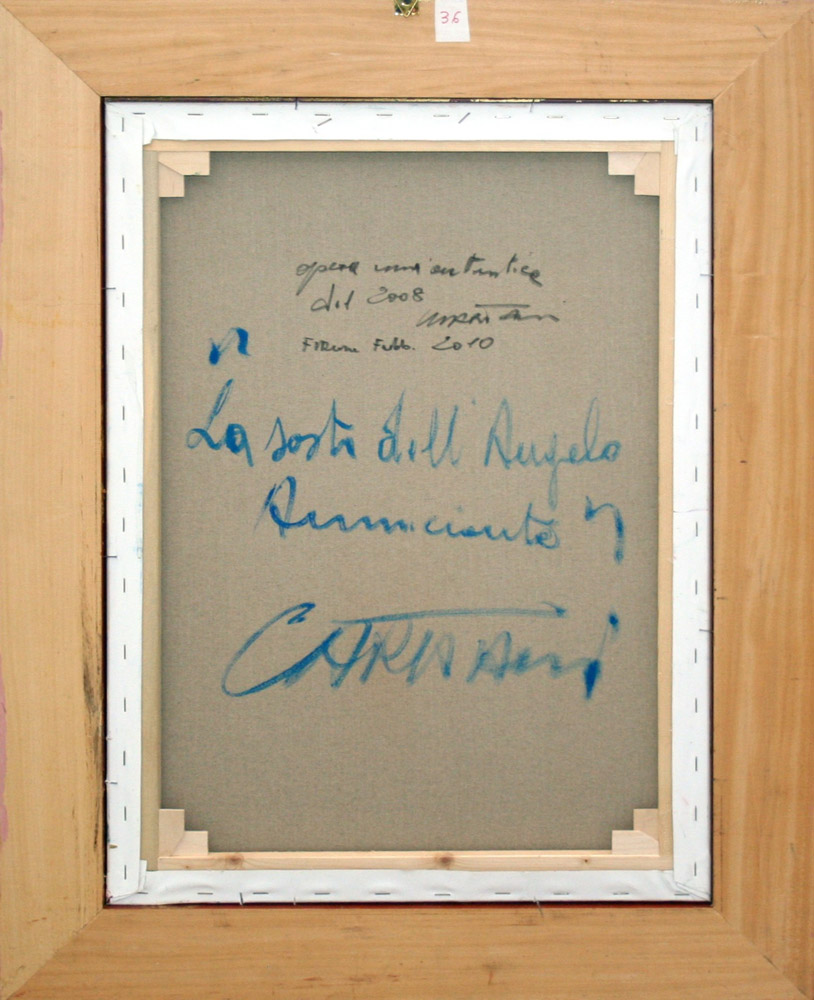 36
opera mia autentica
del 2008
Firenze Febb. 2010
"
La sosta dell'Angelo
Annunciante "